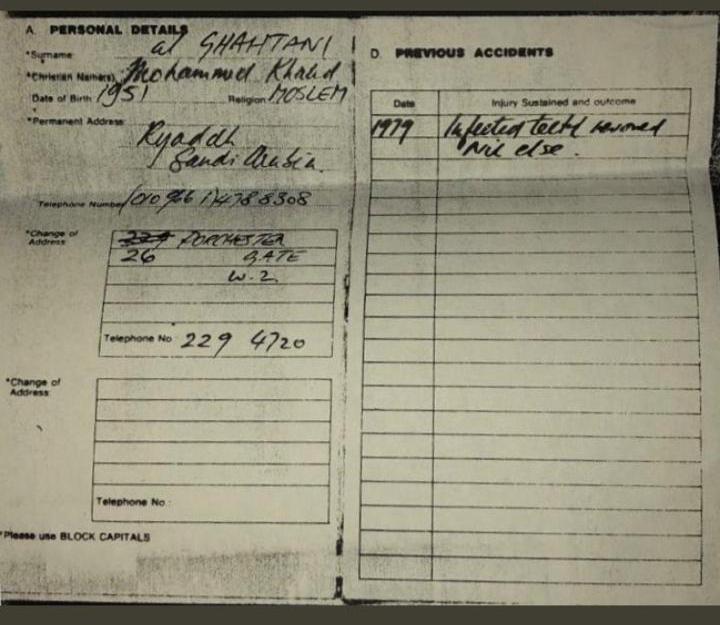 A. PERSONAL DETAILS
*Surname: al GHAHTANI
*Christian Name(s) Mohammed Khalid
Date of Birth 1951 Religion MOSLEM
*Permanent Address:
Ryaddh
Saudi Arabia.
Telephone Number (010 966 1) 4788308
*Change of Address:
229 PORCHESTER
26 GATE
W.2.
Telephone No 229 4720
*Change of Address:
Telephone No.:
*Please use BLOCK CAPITALS
D. PREVIOUS ACCIDENTS
Date Injury Sustained and outcome
1979 Infected teeth removed
Nil else.